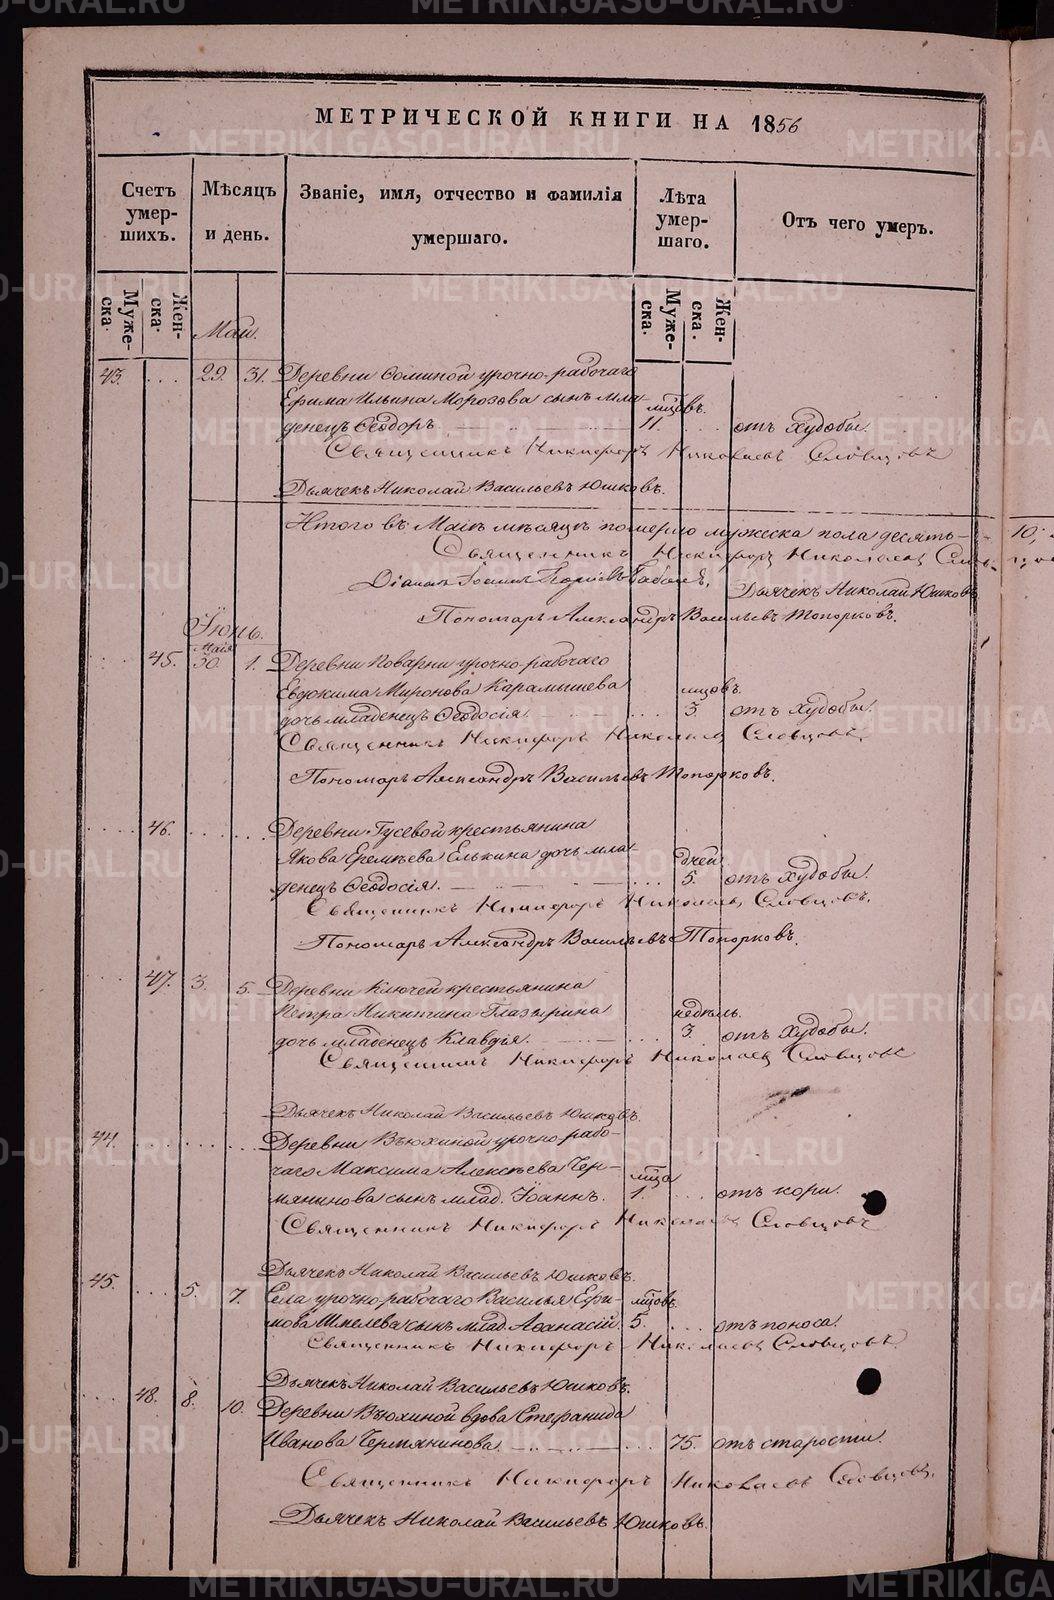 МЕТРИЧЕСКОЙ КНИГИ НА 1856
Счетъ умер-шихъ.
Мѣсяцъ и день.
Званіе, имя, отчество и фамилія умершаго.
Лѣта умер-шаго.
Отъ чего умеръ.
Муже-ска.
Жен-ска.
Муже-ска.
Жен-ска.
Май.
43. ... 29. 31. Деревни Соминой урочно-рабочаго
Ефима Ильина Морозова сынъ мла- мцовъ.
денецъ Ѳеодоръ. 11. ... отъ худобы.
Священникъ Никифоръ Николаевъ Словцовъ
Дьячекъ Николай Васильевъ Юшковъ.
Итого въ Маіѣ мѣсяцѣ померло мужеска пола десять 10;
Священникъ Никифоръ Николаевъ Слов-
Діаконъ Іоаннъ Дьячекъ Николай Юшковъ
Пономарь Александръ Васильевъ Топорковъ.
Іюнь.
Маія
45. 30. 1. Деревни Поварни урочно-рабочаго
Евдокима Миронова Карамышева мцовъ.
дочь младенецъ Ѳеодосія. ... 3. отъ худобы.
Священникъ Никифоръ Николаевъ Словцовъ.
Пономарь Александръ Васильевъ Топорковъ.
46. Деревни Гусевой крестьянина
Якова Еремѣева Елькина дочь мла- дней
денецъ Ѳеодосія. ... 5. отъ худобы.
Священникъ Никифоръ Николаевъ Словцовъ.
Пономарь Александръ Васильевъ Топорковъ.
47. 3. 5. Деревни Ключей крестьянина
Петра Никитина Глазырина недѣль.
дочь младенецъ Клавдія. 3. отъ худобы.
Священникъ Никифоръ Николаевъ Словцовъ
Дьячекъ Николай Васильевъ Юшковъ.
44. Деревни Вьюхиной урочно-рабо-
чаго Максима Алексѣева Чер- мца
мянинова сынъ млад. Іоаннъ. 1. ... отъ кори.
Священникъ Никифоръ Николаевъ Словцовъ
Дьячекъ Николай Васильевъ Юшковъ.
45. ... 5. 7. Села урочно-рабочаго Василья Ефи- мцовъ.
мова Шмелева сынъ млад. Аѳанасій. 5. ... отъ поноса.
Священникъ Никифоръ Николаевъ Словцовъ
Дьячекъ Николай Васильевъ Юшковъ.
48. 8. 10. Деревни Вьюхиной вдова Стефанида
Иванова Чермянинова. ... 75. отъ старости.
Священникъ Никифоръ Николаевъ Словцовъ.
Дьячекъ Николай Васильевъ Юшковъ.
METRIKI.GASO-URAL.RU